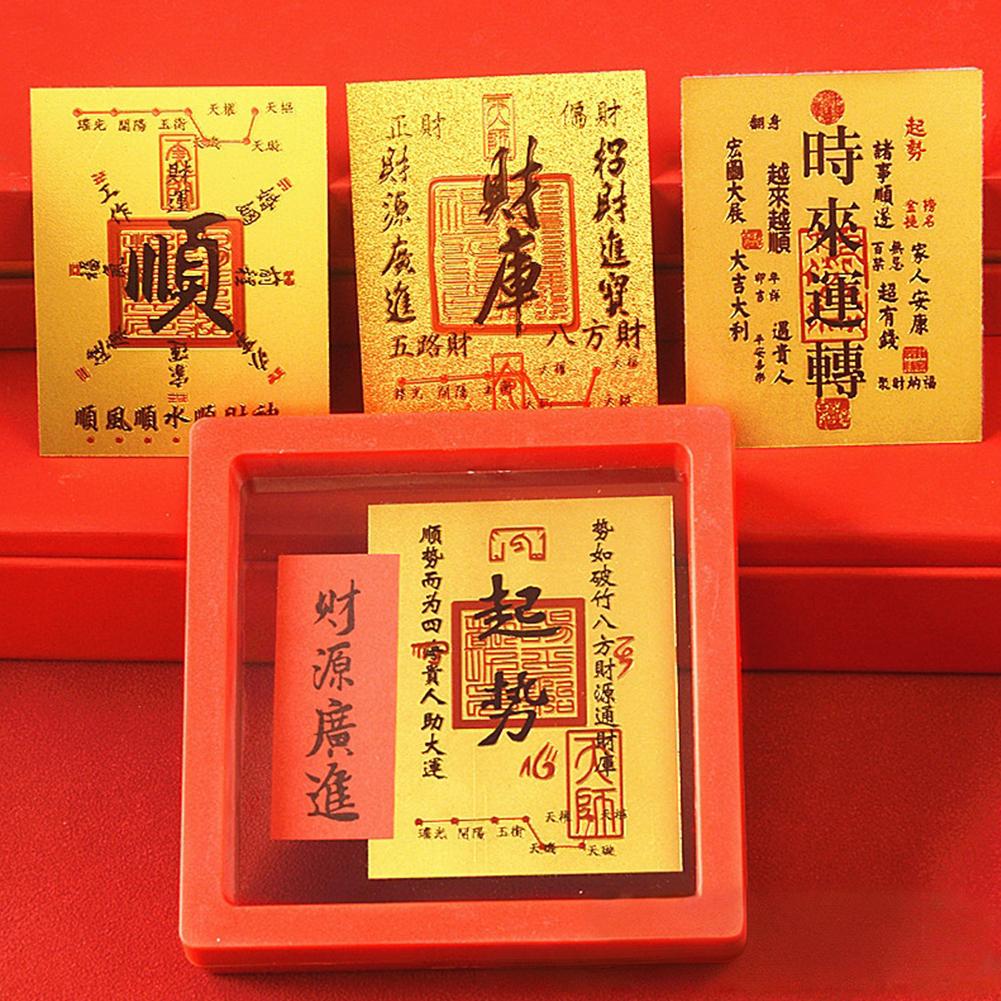 天權 天樞
瑤光 開陽 玉衡
天璇
財
運
工作
順
順風順水順財神
正財
偏財
天師
招財進寶
財庫
財源廣進
五路財
八方財
天權
天樞
瑤光 開陽 玉衡
天璇
起勢
翻身
時來運轉
諸事順遂
越來越順
宏圖大展
大吉大利
家人安康
百無禁忌
超有錢
遇貴人
平安喜樂
聚財納福
金榜
勢如破竹八方財源通財庫
起势
順勢而为四
貴人助大運
財源廣進
天師
天權
瑤光 開陽 玉衡
天璣 天璇